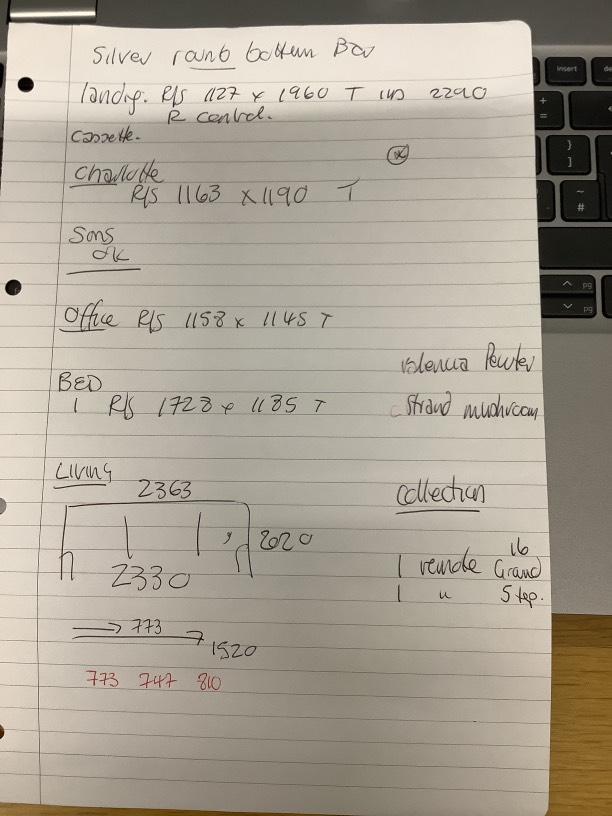 Silver round bottom Bar
landing. R/S 1127 x 1960 T 2290
R control.
Cassette.
Charlotte
R/S 1163 x 1190 T
Sons
OK
Office R/S 1158 x 1145 T
Valencia Pewter
BED
1 R/S 1728 x 1185 T
Strand mushroom
Living
2363
2020
2330
Collection
16
1 remote Grand
1 " Step.
773
1520
773 747 810
insert
de
+
=
}
]
~
#
pg
pg